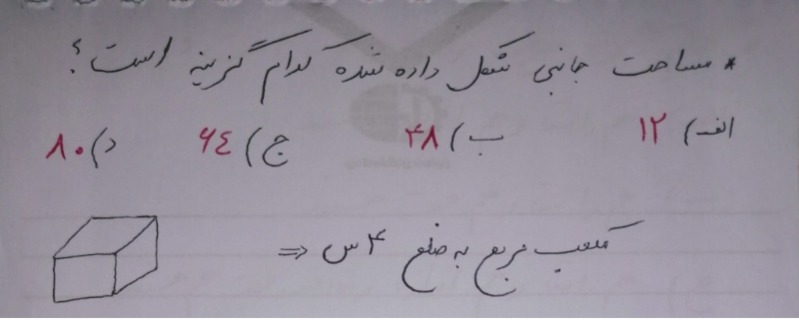 * مساحت جانبی شکل داده شده کدام گزینه است؟
الف) ۱۲ ب) ۴۸ ج) ۶٤ د) ۸۰
مکعب مربع به ضلع ۴س ⇐